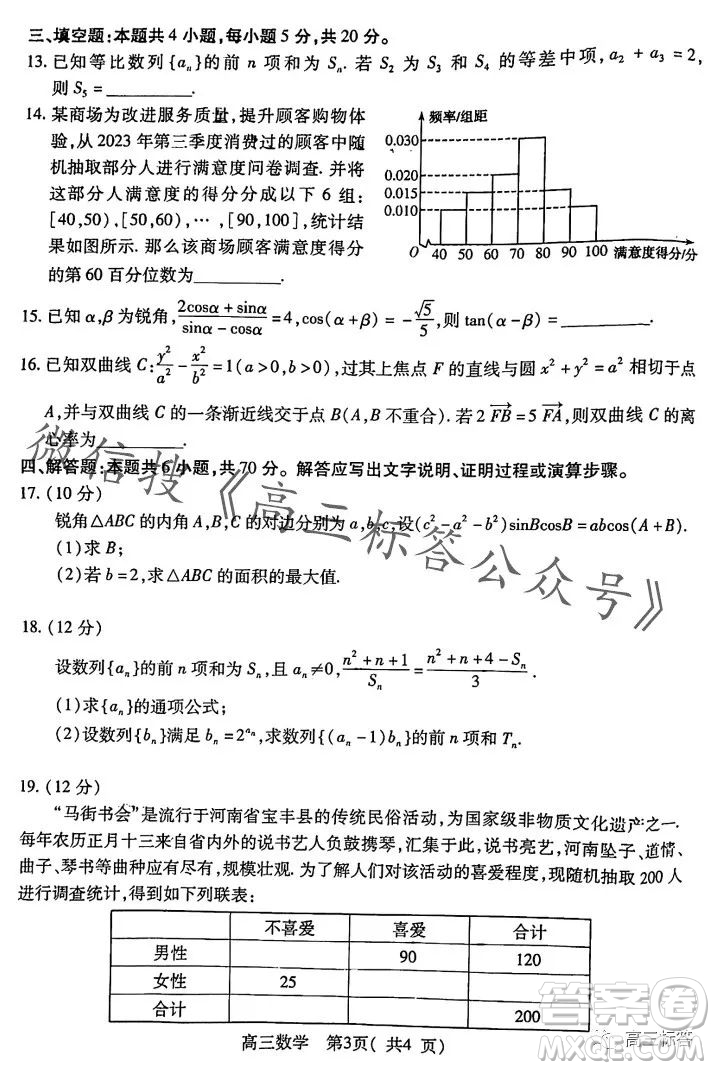 三、填空题:本题共4小题,每小题5分,共20分。
13. 已知等比数列{aₙ}的前 n 项和为 Sₙ. 若 S₂ 为 S₃ 和 S₄ 的等差中项, a₂ + a₃ = 2,
则 S₅ = ________.
14. 某商场为改进服务质量,提升顾客购物体
验,从 2023 年第三季度消费过的顾客中随
机抽取部分人进行满意度问卷调查. 并将
这部分人满意度的得分分成以下 6 组:
[40,50),[50,60),…,[90,100],统计结
果如图所示. 那么该商场顾客满意度得分
的第 60 百分位数为________.
频率/组距
0.030
0.020
0.015
0.010
O 40 50 60 70 80 90 100 满意度得分/分
15. 已知 α,β 为锐角, (2cosα + sinα)/(sinα − cosα) = 4, cos(α+β) = −√5/5, 则 tan(α−β) = ________.
16. 已知双曲线 C: y²/a² − x²/b² = 1(a>0,b>0),过其上焦点 F 的直线与圆 x² + y² = a² 相切于点
A,并与双曲线 C 的一条渐近线交于点 B(A,B 不重合). 若 2FB→ = 5FA→,则双曲线 C 的离
心率为________.
四、解答题:本题共6小题,共70分。解答应写出文字说明、证明过程或演算步骤。
17. (10 分)
锐角△ABC 的内角 A,B,C 的对边分别为 a,b,c,设(c²−a²−b²)sinBcosB = abcos(A+B).
(1)求 B;
(2)若 b=2,求△ABC 的面积的最大值.
18. (12 分)
设数列{aₙ}的前 n 项和为 Sₙ,且 aₙ≠0, (n²+n+1)/Sₙ = (n²+n+4−Sₙ)/3.
(1)求{aₙ}的通项公式;
(2)设数列{bₙ}满足 bₙ = 2^(aₙ),求数列{(aₙ−1)bₙ}的前 n 项和 Tₙ.
19. (12 分)
“马街书会”是流行于河南省宝丰县的传统民俗活动,为国家级非物质文化遗产之一.
每年农历正月十三来自省内外的说书艺人负鼓携琴,汇集于此,说书亮艺,河南坠子、道情、
曲子、琴书等曲种应有尽有,规模壮观. 为了解人们对该活动的喜爱程度,现随机抽取 200 人
进行调查统计,得到如下列联表:
不喜爱 喜爱 合计
男性 90 120
女性 25
合计 200
高三数学 第3页( 共4 页)
微信搜《高三标答公众号》
答案圈
高三标答
MXQE.COM